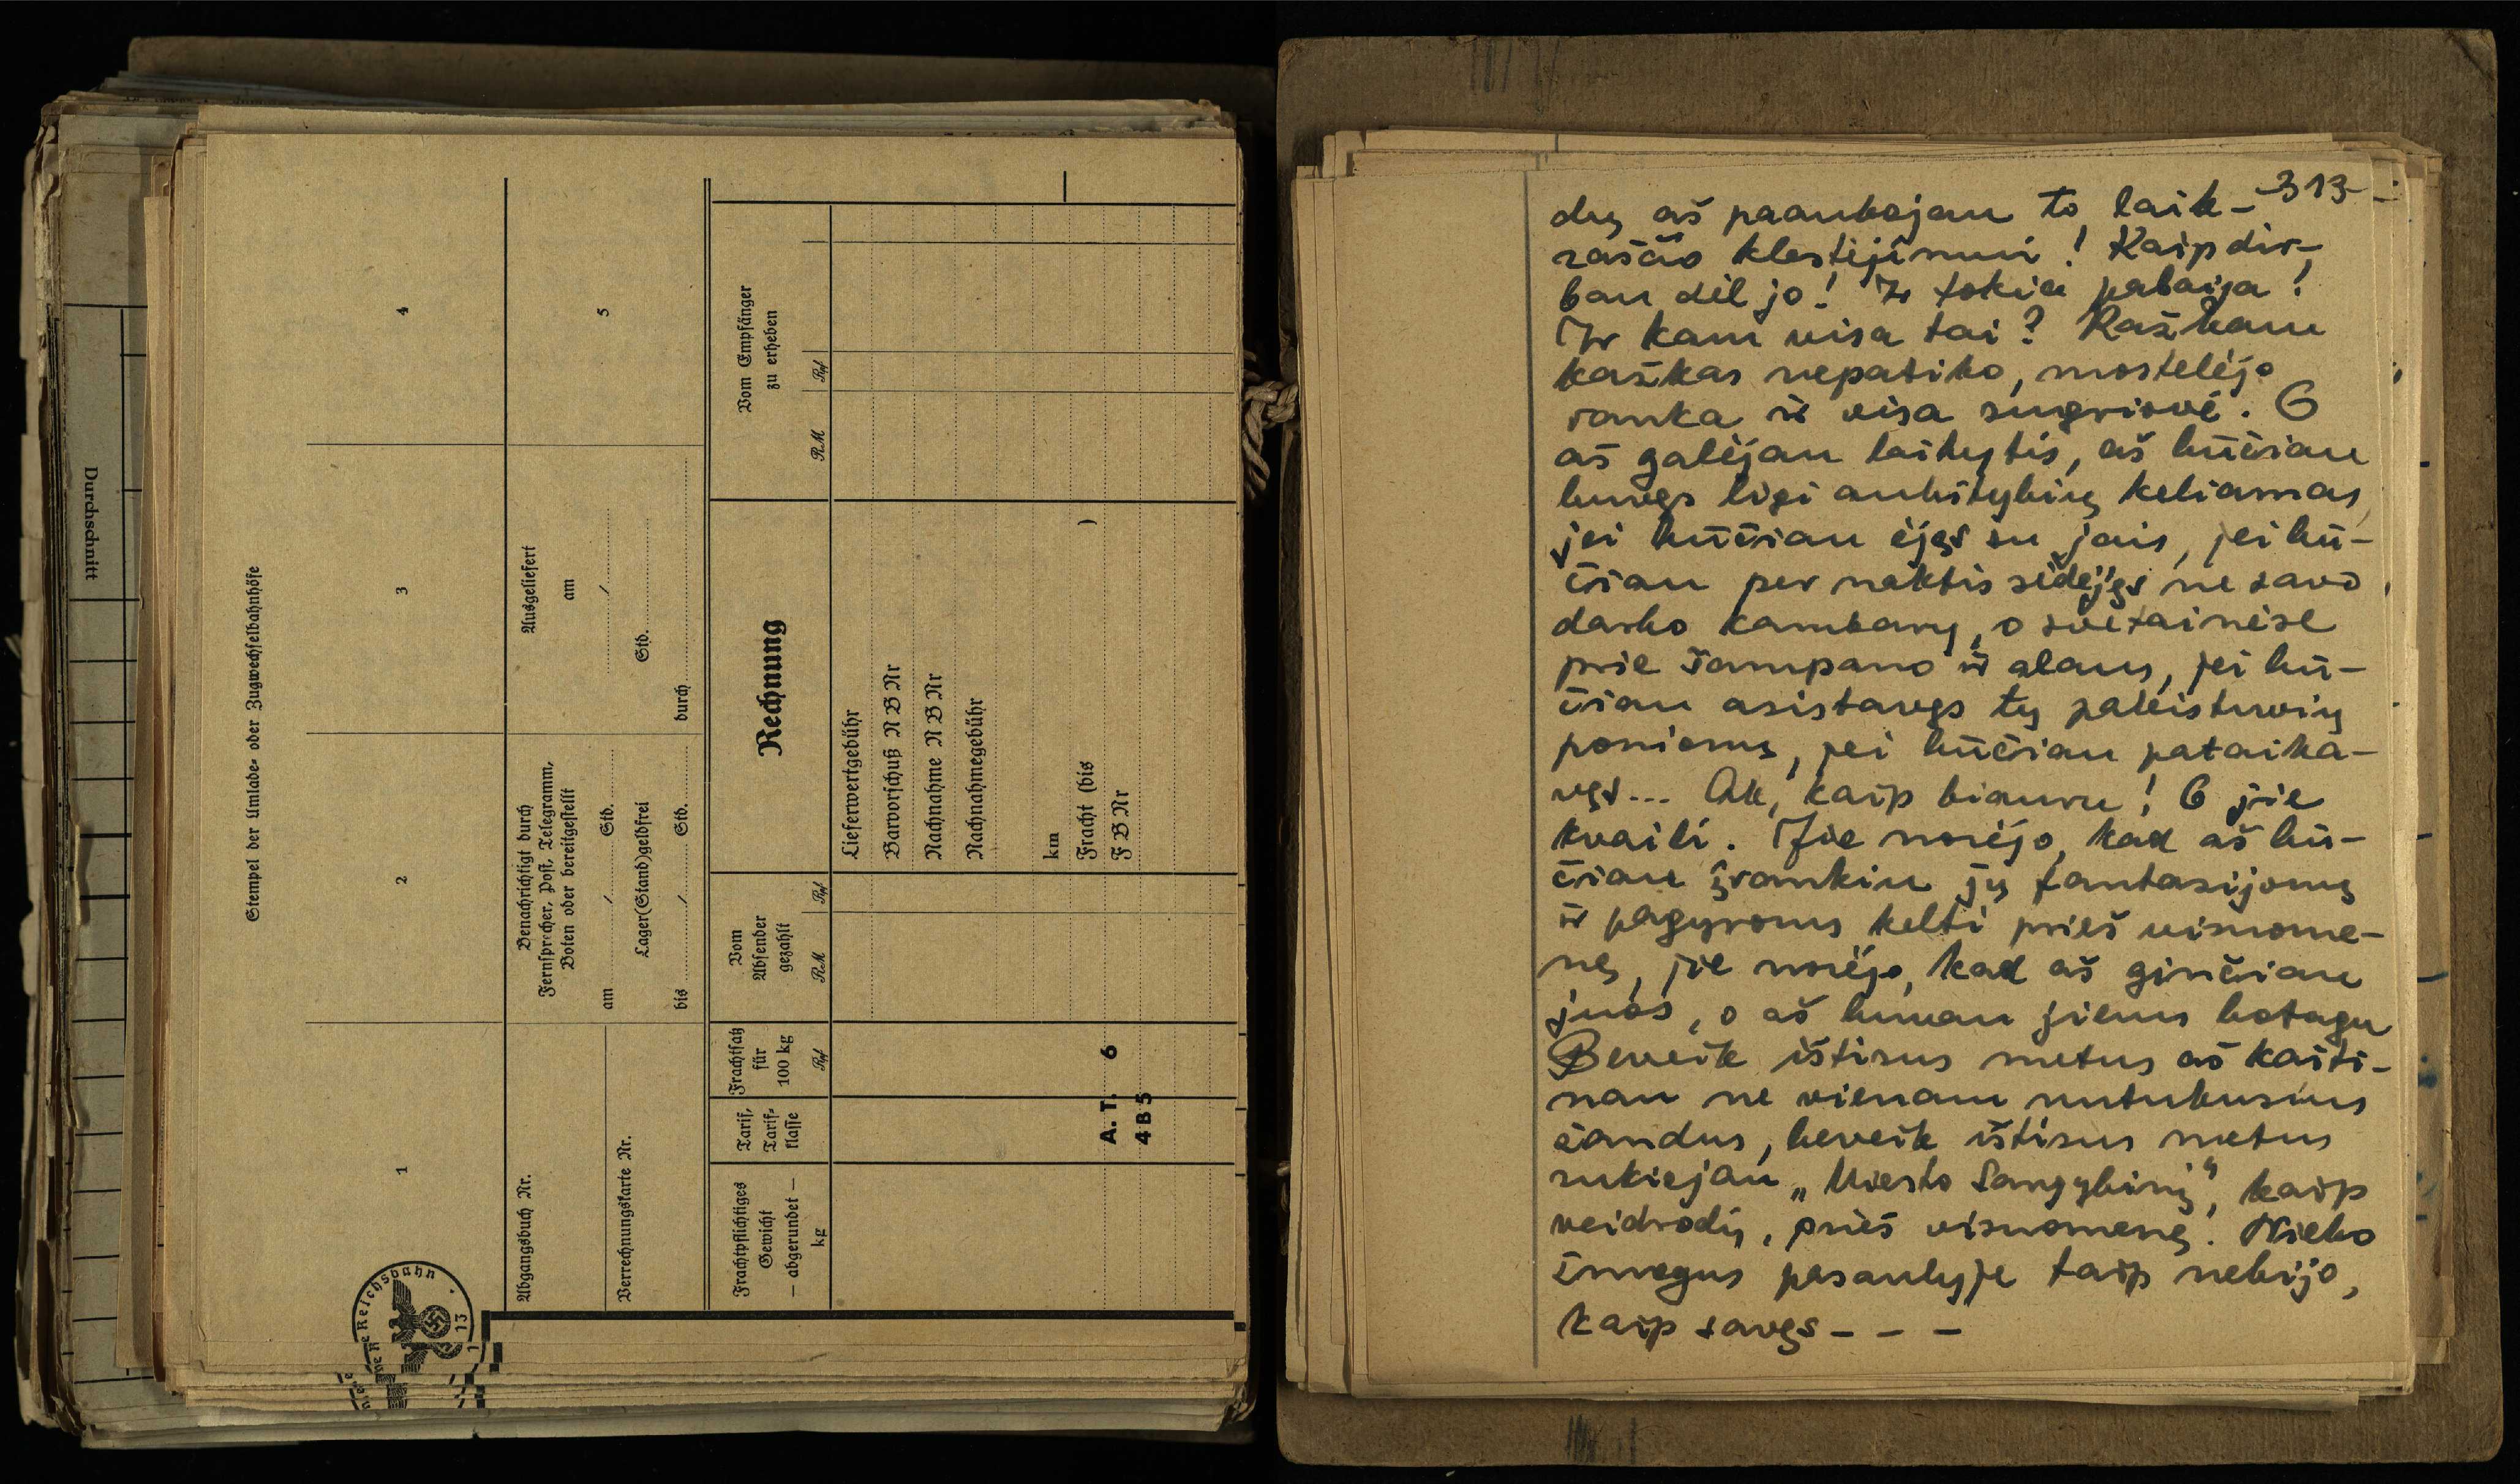 Durchschnitt
Stempel der Umlade- oder Zugwechselbahnhöfe
1
2
3
4
Abgangsbuch Nr.
Verrechnungskarte Nr.
Benachrichtigt durch
Fernsprecher, Post, Telegramm,
Boten oder bereitgestellt
am / Std.
Lager(Stand)geldfrei
bis / Std.
Ausgeliefert
am
/
Std.
durch
5
Frachtpflichtiges
Gewicht
— abgerundet —
kg
Tarif,
Tarif-
klasse
Frachtsatz
für
100 kg
Rpf
Vom
Absender
gezahlt
RM Rpf
Rechnung
Vom Empfänger
zu erheben
RM Rpf
Lieferwertgebühr
Barvorschuß N B Nr
Nachnahme N B Nr
Nachnahmegebühr
km
Fracht (bis )
F B Nr
A. T. 6
4 B 5
Reichsbahn
13
-313-
dų aš paaukojau to laik-
raščio klestėjimui! Kaip dir-
bau dėl jo! Ir tokia pabaiga!
Ir kam visa tai? Kažkam
kažkas nepatiko, mostelėjo
ranka ir visa sugriovė. O
aš galėjau laikytis, aš būčiau
buvęs ligi aukštybių keliamas,
jei būčiau ėjęs su jais, jei bū-
čiau per naktis sėdėjęs ne savo
darbo kambary, o svetainėse
prie šampano ir alaus, jei bū-
čiau asistavęs tų paleistuvių
ponioms, jei būčiau pataika-
vęs... Ak, kaip biauru! O jie
kvaili. Jie norėjo, kad aš bū-
čiau įrankiu jų fantasijoms
ir pagyroms kelti prieš visuome-
nę, jie norėjo, kad aš ginčiau
juos, o aš buvau jiems botagu
Beveik ištisus metus aš kaiti-
nau ne vienam nutukusius
žandus, beveik ištisus metus
sukiojau „Miesto Sargybinį", kaip
veidrodį, prieš visuomenę. Nieko
žmogus pasaulyje taip nebijo,
kaip savęs - - -